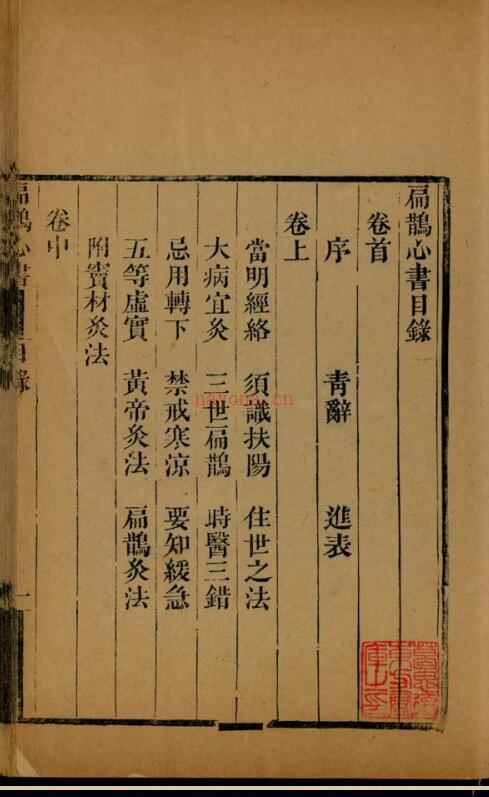 扁鵲心書目錄
卷首
序 青辭 進表
卷上
當明經絡 須識扶陽 住世之法
大病宜灸 三世扁鵲 時醫三錯
忌用轉下 禁戒寒涼 要知緩急
五等虛實 黃帝灸法 扁鵲灸法
附竇材灸法
卷中
扁鵲心書 目錄 一
nayona.cn